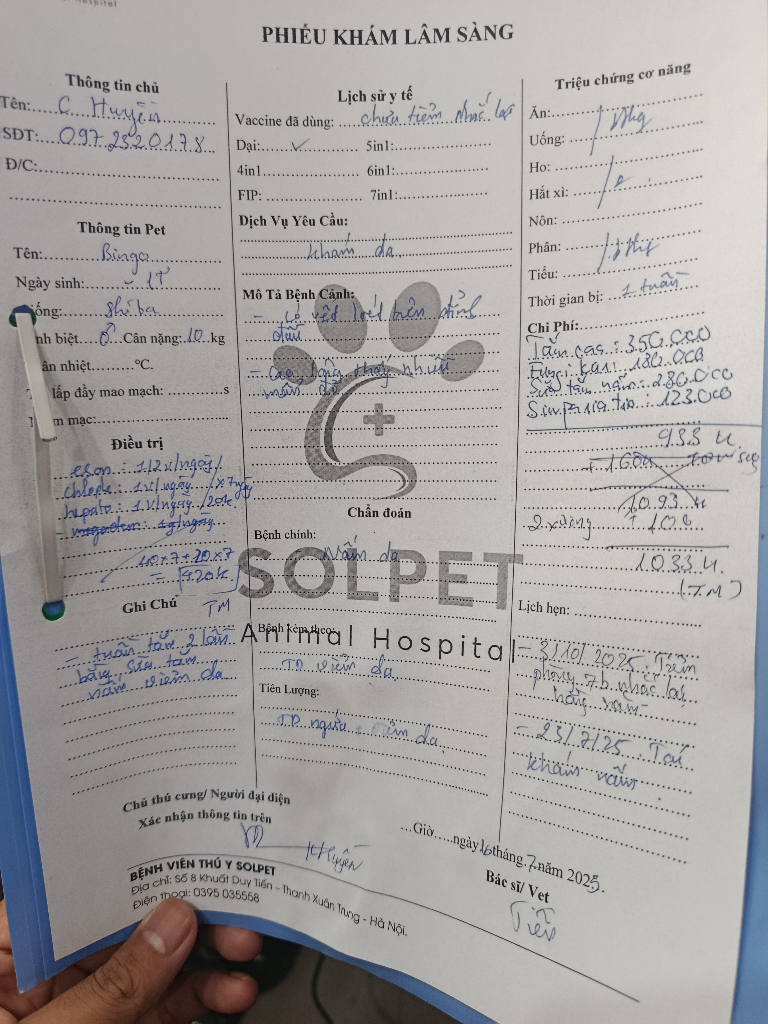 PHIẾU KHÁM LÂM SÀNG
Thông tin chủ
Tên: C. Huyền
SĐT: 097 2320178
Đ/C:
Thông tin Pet
Tên: Bingo
Ngày sinh: ~ 1T
Giống: Shiba
nh biệt ♂ Cân nặng: 10 kg
ân nhiệt ºC.
lấp đầy mao mạch: s
m mạc:
Điều trị
eson: 1/2v/ngày
1v/ngày x 7 ngày
hepato: 1v/ngày /20k
1g/ngày
10×7+20×7
= 420k
TM
Ghi Chú
- tuần tắm 2 lần
bằng sữa tắm
nấm, viêm da
Lịch sử y tế
Vaccine đã dùng: chưa tiêm nhắc lại
Dại: ✓ 5in1:
4in1 6in1:
FIP: 7in1:
Dịch Vụ Yêu Cầu:
khám da
Mô Tả Bệnh Cảnh:
- Có vết loét trên đỉnh
đầu
- Cạo lông thấy nhiều
mẩn đỏ
Chẩn đoán
Bệnh chính:
Nấm da
SOLPET
Animal Hospital
Bệnh kèm theo:
TD viêm da
Tiên Lượng:
TD ngứa, viêm da
Triệu chứng cơ năng
Ăn:
Uống:
Ho:
Hắt xì:
Nôn:
Phân:
Tiểu:
Thời gian bị: 1 tuần
Chi Phí:
350.000
180.000
Sữa tắm nấm: 280.000
123.000
933 k
+ 160k
1093 k
2 xương + 100
1033 k
(TM)
Lịch hẹn:
- 3/10/2025. Tiêm
phòng 7b nhắc lại
hằng năm
- 23/7/25 Tái
khám nấm
Chủ thú cưng/ Người đại diện
Xác nhận thông tin trên
Huyền
...Giờ.....ngày 16 tháng 7 năm 2025.
Bác sĩ/ Vet
Tiến
BỆNH VIỆN THÚ Y SOLPET
Địa chỉ: Số 8 Khuất Duy Tiến - Thanh Xuân Trung - Hà Nội.
Điện thoại: 0395 035558